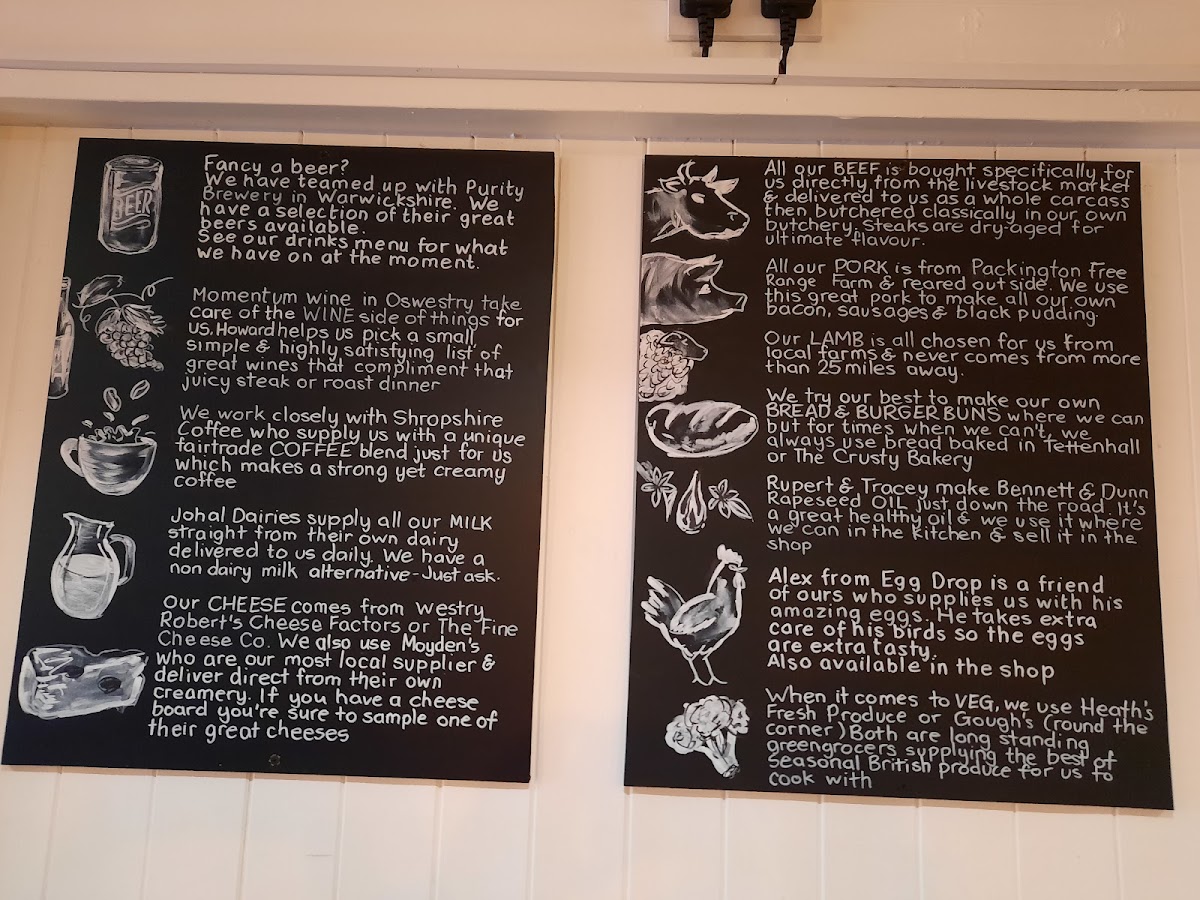 BEER
Fancy a beer?
We have teamed up with Purity
Brewery in Warwickshire. We
have a selection of their great
beers available.
See our drinks menu for what
we have on at the moment.
Momentum wine in Oswestry take
care of the WINE side of things for
us, Howard helps us pick a small,
simple & highly satisfying list of
great wines that compliment that
juicy steak or roast dinner
We work closely with Shropshire
Coffee who supply us with a unique
fairtrade COFFEE blend just for us
which makes a strong yet creamy
coffee
Johal Dairies supply all our MILK
straight from their own dairy
delivered to us daily. We have a
non dairy milk alternative-Just ask.
Our CHEESE comes from Westry
Robert's Cheese Factors or The Fine
Cheese Co. We also use Moyden's
who are our most local supplier &
deliver direct from their own
creamery. If you have a cheese
board you're sure to sample one of
their great cheeses
All our BEEF is bought specifically for
us directly from the livestock market
& delivered to us as a whole carcass
then butchered classically in our own
butchery. Steaks are dry-aged for
ultimate flavour.
All our PORK is from Packington Free
Range Farm & reared outside. We use
this great pork to make all our own
bacon, sausages & black pudding.
Our LAMB is all chosen for us from
local farms & never comes from more
than 25 miles away.
We try our best to make our own
BREAD & BURGER BUNS where we can
but for times when we can't, we
always use bread baked in Tettenhall
or The Crusty Bakery
Rupert & Tracey make Bennett & Dunn
Rapeseed OIL just down the road. It's
a great healthy oil & we use it where
we can in the kitchen & sell it in the
shop
Alex from Egg Drop is a friend
of ours who supplies us with his
amazing eggs. He takes extra
care of his birds so the eggs
are extra tasty.
Also available in the shop
When it comes to VEG, we use Heath's
Fresh Produce or Gough's (round the
corner) Both are long standing
greengrocers supplying the best of
seasonal British produce for us to
cook with